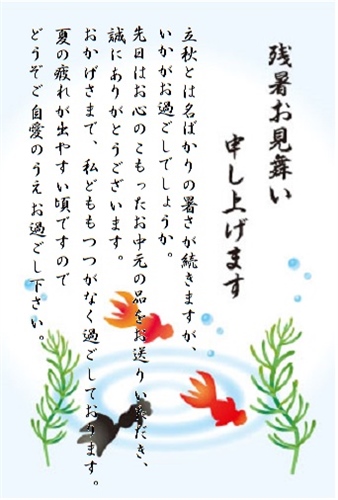 残暑お見舞い
申し上げます
立秋とは名ばかりの暑さが続きますが、
いかがお過ごしでしょうか。
先日はお心のこもったお中元の品をお送りいただき、
誠にありがとうございます。
おかげさまで、私どももつつがなく過ごしております。
夏の疲れが出やすい頃ですので
どうぞご自愛のうえお過ごし下さい。